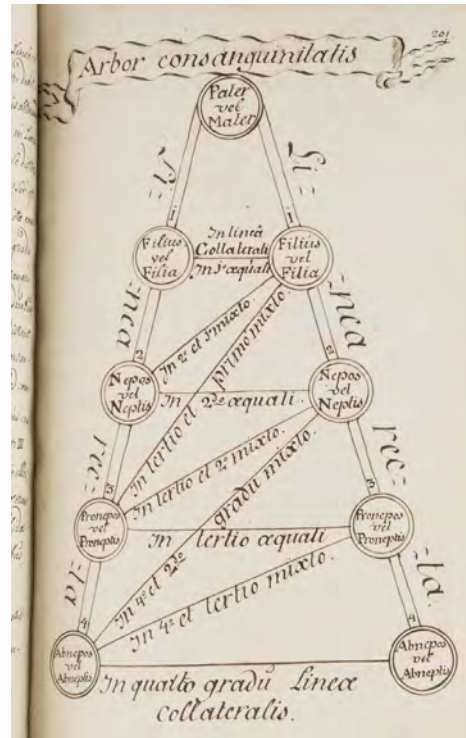 201
Arbor consanguinitatis
Pater
vel
Mater
Li= Li=
1 1
Filius
vel
Filia
In linea
Collaterali
In 1º æquali
Filius
vel
Filia
nea =nea
In 2º et 1º mixto.
In tertio et primo mixto.
2 2
Nepos
vel
Neptis
In 2do æquali.
Nepos
vel
Neptis
rec= rec=
In tertio et 2º mixto.
In 4º et 2do gradu mixto.
3 3
Pronepos
vel
Proneptis
In tertio æquali
Pronepos
vel
Proneptis
=ta =ta.
In 4º et tertio mixto.
4 4
Abnepos
vel
Abneptis
Abnepos
vel
Abneptis
In quarto gradu Lineæ
Collateralis.